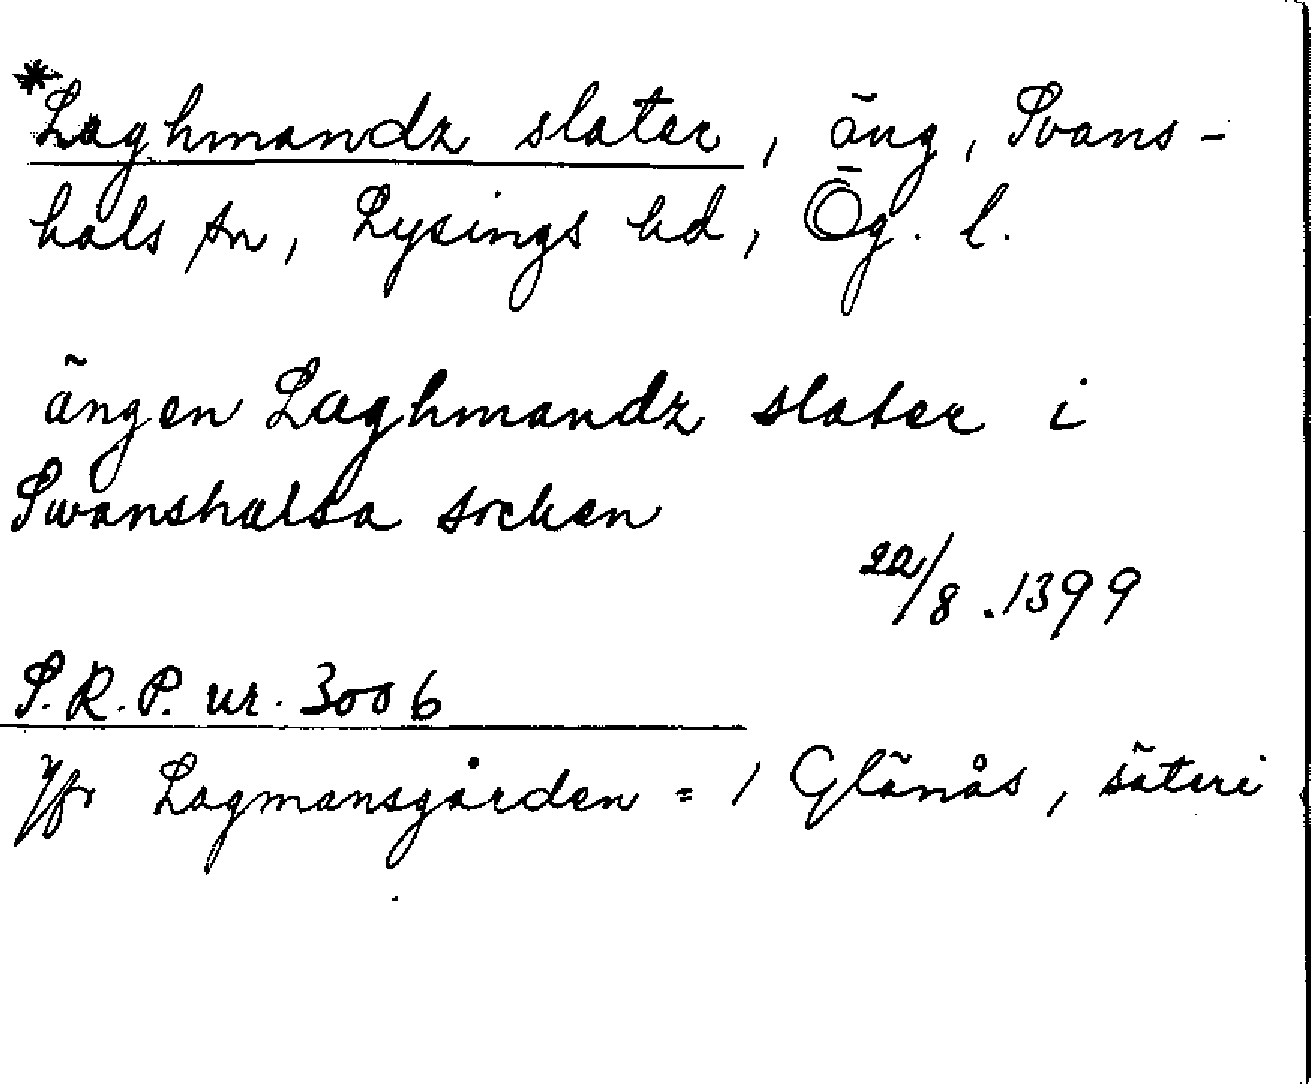 *Laghmandz slater, äng, Svans-
hals sn, Lysings hd, Ög. l.
ängen Laghmandz slater i
Swanshalsa socken
22/8.1399
S.R.P. nr. 3006
Jfr Lagmansgården = 1 Glänås, säteri